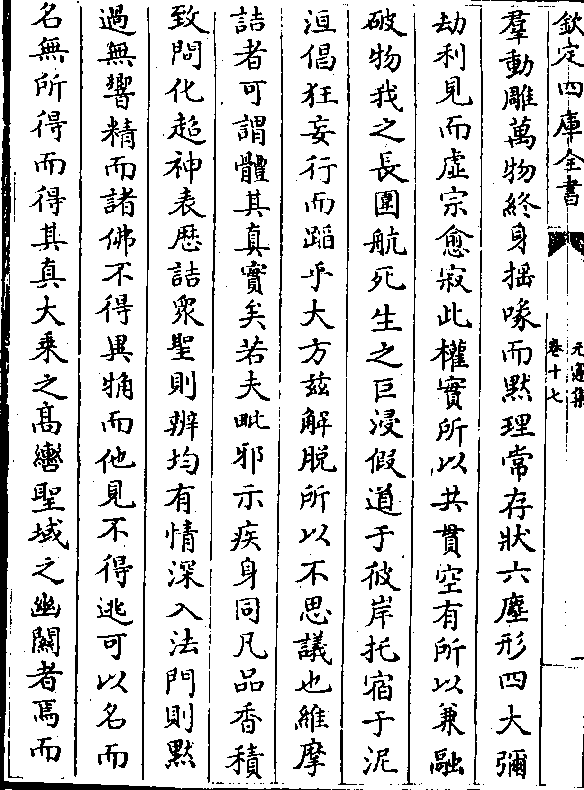 欽定四庫全書
元憲集
卷十七
一
羣動雕萬物終身揺喙而默理常存狀六塵形四大彌
劫利見而虛宗愈寂此權實所以共貫空有所以兼融
破物我之長圍航死生之巨浸假道于彼岸托宿于泥
洹倡狂妄行而蹈乎大方兹解脱所以不思議也維摩
詰者可謂體其真實矣若夫毗邪示疾身同凡品香積
致問化超神表歴詰衆聖則辨均有情深入法門則默
過無響精而諸佛不得異觕而他見不得逃可以名而
名無所得而得其真大乗之髙轡聖域之幽闗者焉而